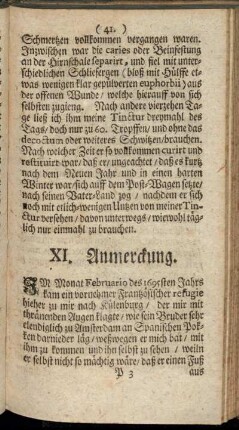 ( 42. )
Schmertzen vollkommen vergangen waren.
Inzwischen war die caries oder Beinfestung
an der Hirnschale separirt / und fiel mit unter-
schiedlichen Schliefergen (bloß mit Hülffe et-
was wenigen klar gepülverten euphorbii) aus
der offenen Wunde / welche hierauff von sich
selbsten zugieng. Nach andere vierzehen Ta-
ge ließ ich ihm meine Tinctur dreymahl des
Tags / doch nur zu 60. Tropffen / und ohne das
decoctum oder weiteres Schwitzen / brauchen.
Nach welcher Zeit er so vollkommen curirt und
restituirt war / daß er / ungeachtet / daß es kurtz
nach dem Neuen Jahr und in einen harten
Winter war / sich auff dem Post-Wagen setzte /
nach seinen Vater-Land zog / nachdem er sich
noch mit etlich-wenigen Untzen von meiner Tin-
ctur versehen / davon unterwegs / wiewohl täg-
lich nur einmahl zu brauchen.
XI. Anmerckung.
IM Monat Februario des 1691sten Jahrs
kam ein vornehmer Frantzösischer refugie
hieher zu mir nach Külenburg / der mir mit
thränenden Augen klagte / wie sein Bruder sehr
elendiglich zu Amsterdam an Spanischen Pok-
ken darnieder läg / weßwegen er mich bat / mit
ihm zu kommen und ihn selbst zu sehen / weiln
er selbst nicht so mächtig wäre / daß er einen Fuß
P 3 aus